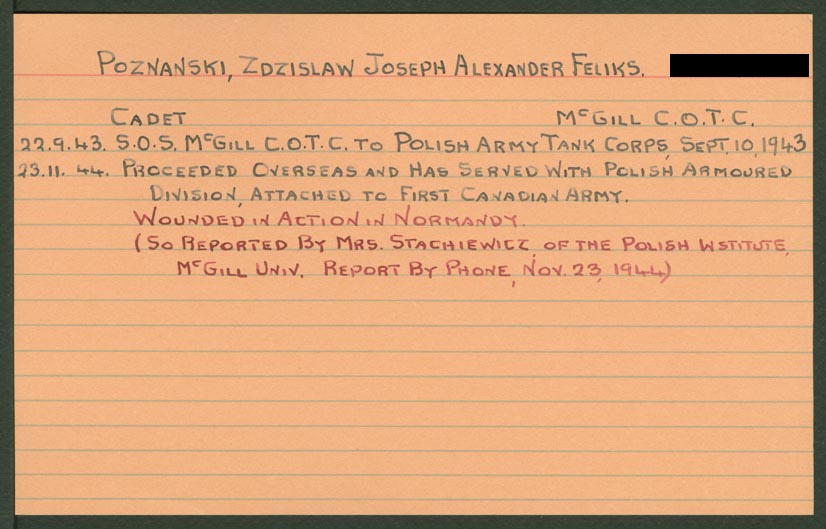 POZNANSKI, ZDZISLAW JOSEPH ALEXANDER FELIKS.
CADET McGILL C.O.T.C.
22.9.43. S.O.S. McGILL C.O.T.C. TO POLISH ARMY TANK CORPS, SEPT. 10, 1943
23.11.44. PROCEEDED OVERSEAS AND HAS SERVED WITH POLISH ARMOURED
DIVISION, ATTACHED TO FIRST CANADIAN ARMY.
WOUNDED IN ACTION IN NORMANDY.
(SO REPORTED BY MRS. STACHIEWICZ, OF THE POLISH INSTITUTE,
McGILL UNIV. REPORT BY PHONE, NOV. 23, 1944)